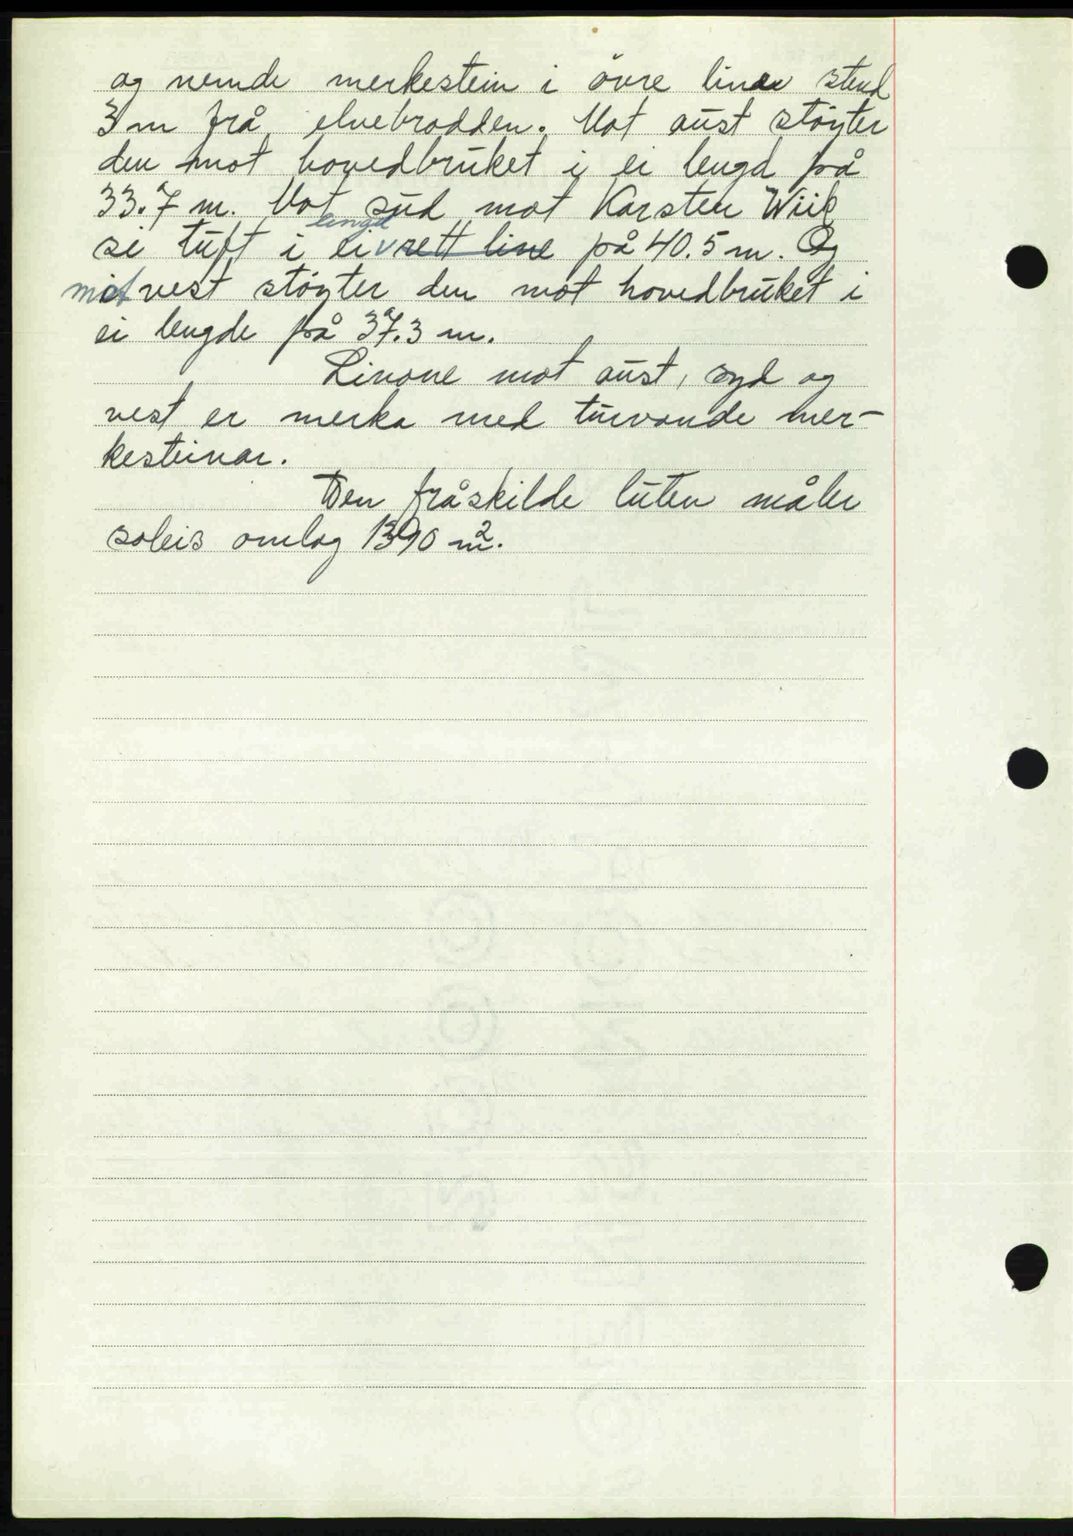 og nemde merkestein i øvre linae stend
3 m frå elvebrodden. Mot aust støyter
den mot hovedbruket i ei lengd på
33.7 m. Mot sud mot Karsten Wiik
si tuft i ei lengd rett line på 40.5 m. Og
mot vest støyter den mot hovedbruket i
ei lengde på 37.3 m.
Linone mot aust, syd og
vest er merka med turvande mer-
kesteinar.
Den fråskilde luten måler
soleis omlag 1390 m².